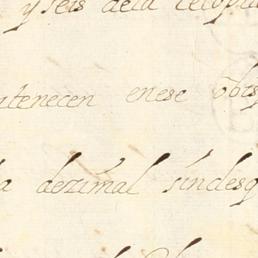 y seis de la
tenecen enese obis
a dezimal sindesq